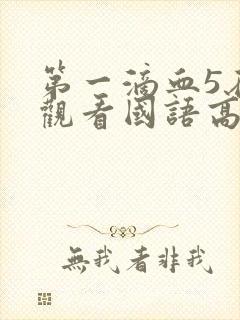 第一滴血5在
觀看國語高
無我者非我